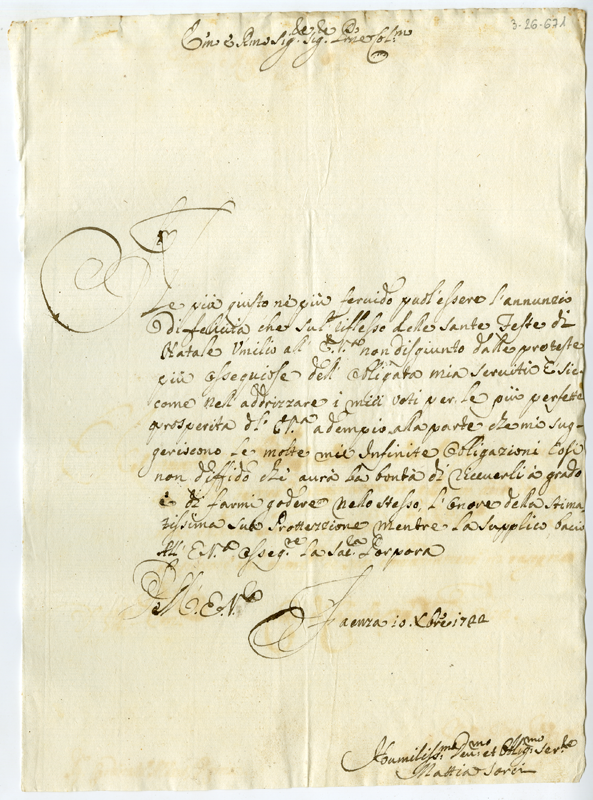 3-26-671
Em͞o e Rm͞o Sig.re Sig.re Pron͞e Col.mo
Ne più giusto ne più fervido puol'essere l'annunzio
di felicità che sul riflesso delle sante Feste di
Natale Umilio al' E.V.ra non disgiunto dalle proteste
più ossequiose dell' obligata mia servitù E sic-
come nell' addrizzare i miei voti per le più perfette
prosperità di E.V.ra adempio alla parte che mi sug-
geriscono le molte mie Infinite obligazioni Cosi
non diffido ch'è aurà la bontà di riceverli à grado
è di farmi godere nello stesso, l'onore della stima-
tissima sua Prottezzione mentre La supplico, bacio
All' E.V.ra osseq.te La Sac.ra Porpora
Di V.E.V.ra
Faenza 10. Xbre 1722
Houmiliss.mo Deu.mo et Oblig.mo Ser.re
Mattia Sorci